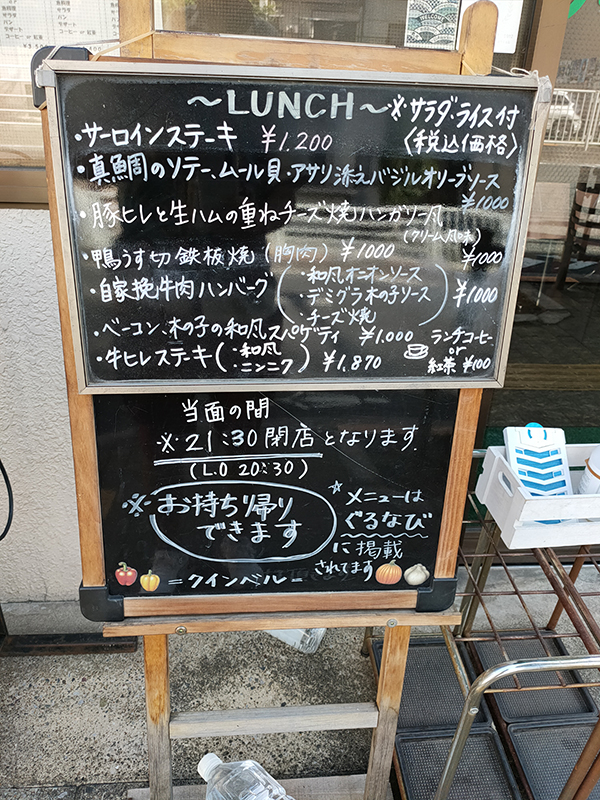 ~LUNCH~ ※サラダ・ライス付
・サーロインステーキ ¥1.200 〈税込価格〉
・真鯛のソテー、ムール貝・アサリ添えバジルオリーブソース
¥1000
・豚ヒレと生ハムの重ねチーズ焼ハンガリー風
(クリーム風味) ¥1000
・鴨うす切鉄板焼(胸肉) ¥1000
・自家挽牛肉ハンバーグ
・和風オニオンソース
・デミグラ木の子ソース
・チーズ焼
¥1000
・ベーコン、木の子の和風スパゲティ ¥1.000
・牛ヒレステーキ(・和風
・ニンニク) ¥1.870
ランチコーヒー
or
紅茶 ¥100
当面の間
※21:30閉店となります.
(L.O 20:30)
※お持ち帰り
できます
☆メニューは
ぐるなび
に掲載
されてます
=クインベル=
サラダ
パン
デザート
コーヒー or 紅茶